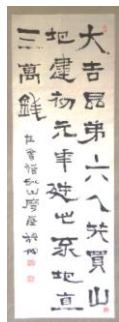 大吉昆弟六人共買山
地建初元年造此冢地直
三萬錢
會稽跳山摩崖